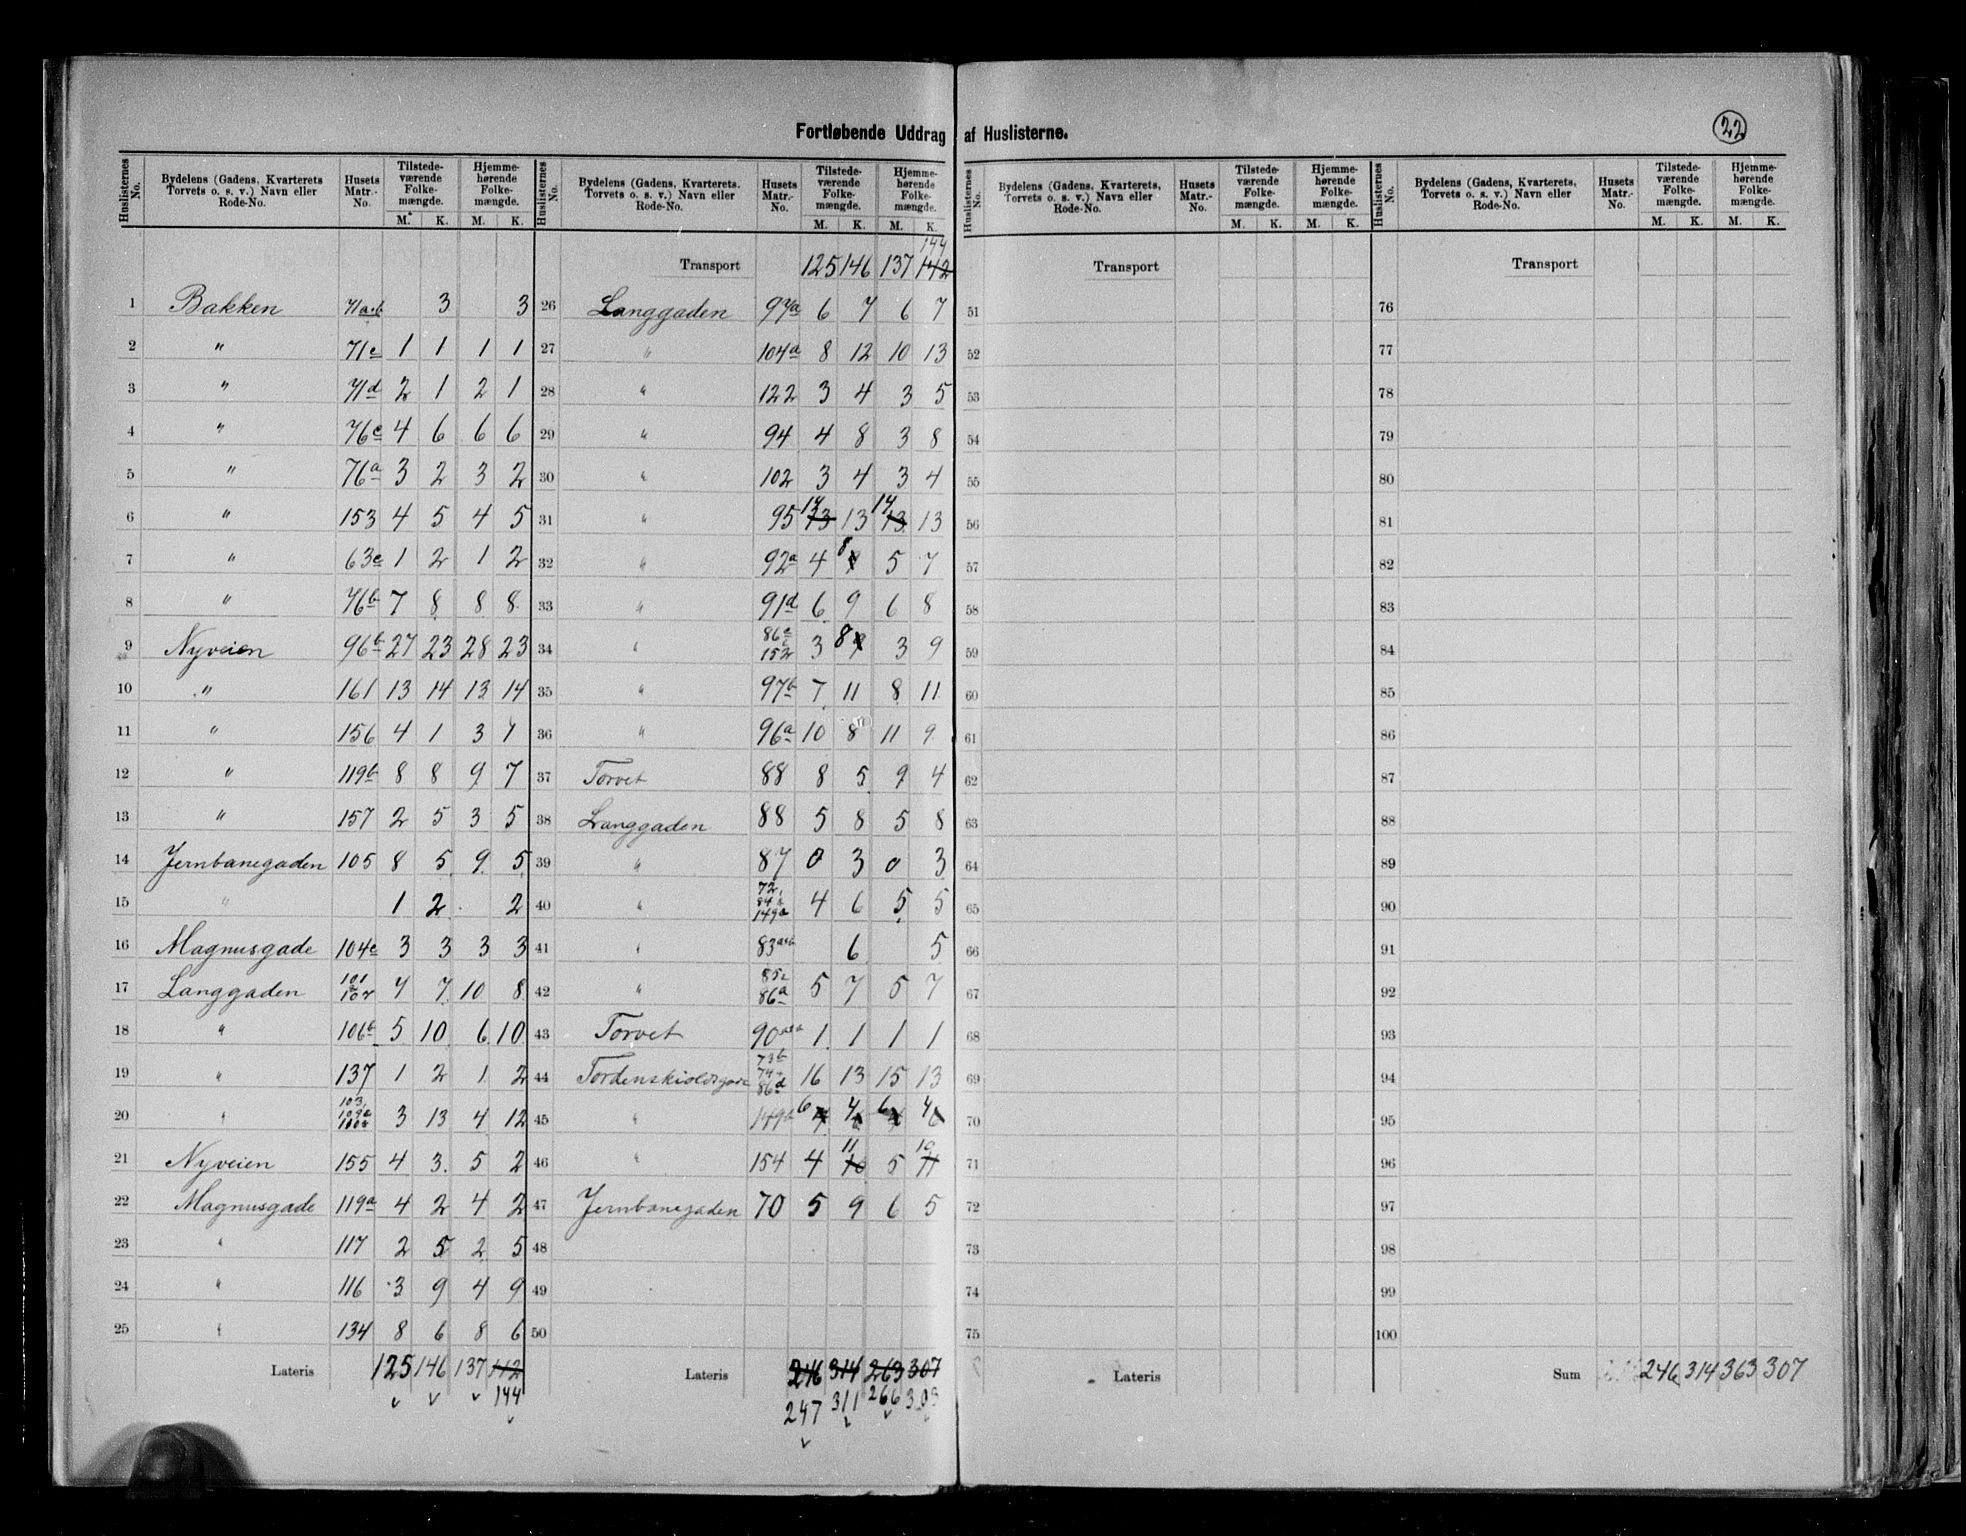 Fortløbende Uddrag af Huslisterne.
22
Huslisternes No. Bydelens (Gadens, Kvarterets Torvets o. s. v.) Navn eller Rode-No. Husets Matr.-No. Tilstede-værende Folke-mængde. M. K. Hjemme-hørende Folke-mængde. M. K.
1 Bakken 71a+b 3 3
2 " 71c 1 1 1 1
3 " 71d 2 1 2 1
4 " 76c 4 6 6 6
5 " 76a 3 2 3 2
6 " 153 4 5 4 5
7 " 63c 1 2 1 2
8 " 76b 7 8 8 8
9 Nyveien 96b 27 23 28 23
10 " 161 13 14 13 14
11 " 156 4 1 3 1
12 " 119b 8 8 9 7
13 " 157 2 5 3 5
14 Jernbanegaden 105 8 5 9 5
15 " 1 2 2
16 Magnusgade 104c 3 3 3 3
17 Langgaden 101 102 7 7 10 8
18 " 106b 5 10 6 10
19 " 137 1 2 1 2
20 " 103, 3 13 4 12
21 Nyveien 155 4 3 5 2
22 Magnusgade 119a 4 2 4 2
23 " 117 2 5 2 5
24 " 116 3 9 4 9
25 " 134 8 6 8 6
Lateris 125 146 137 142
144
Huslisternes No. Bydelens (Gadens, Kvarterets, Torvets o. s. v.) Navn eller Rode-No. Husets Matr.-No. Tilstede-værende Folke-mængde. M. K. Hjemme-hørende Folke-mængde. M. K.
144
Transport 125 146 137 142
26 Langgaden 97a 6 7 6 7
27 " 104a 8 12 10 13
28 " 122 3 4 3 5
29 " 94 4 8 3 8
30 " 102 3 4 3 4
31 " 95 14 13 13 14 13 13
32 " 92a 4 8 5 7
33 " 91d 6 9 6 8
34 " 86c 152 3 8 3 9
35 " 97b 7 11 8 11
36 " 96a 10 8 11 9
37 Torvet 88 8 5 9 4
38 Langgaden 88 5 8 5 8
39 " 87 0 3 0 3
40 " 72, 149a 4 6 5 5
41 " 83a+b 6 5
42 " 86a 5 7 5 7
43 Torvet 90 1 1 1 1
44 Tordenskioldsgade 73b 86d 16 13 15 13
45 " 149a 6 4 6 4
46 " 154 4 11 10 5 10 11
47 Jernbanegaden 70 5 9 6 5
48
49
50
Lateris 246 314 263 307
247 311 266 303
Huslisternes No. Bydelens (Gadens, Kvarterets, Torvets o. s. v.) Navn eller Rode-No. Husets Matr.-No. Tilstede-værende Folke-mængde. M. K. Hjemme-hørende Folke-mængde. M. K.
Transport
51
52
53
54
55
56
57
58
59
60
61
62
63
64
65
66
67
68
69
70
71
72
73
74
75
Lateris
Huslisternes No. Bydelens (Gadens, Kvarterets, Torvets o. s. v.) Navn eller Rode-No. Husets Matr.-No. Tilstede-værende Folke-mængde. M. K. Hjemme-hørende Folke-mængde. M. K.
Transport
76
77
78
79
80
81
82
83
84
85
86
87
88
89
90
91
92
93
94
95
96
97
98
99
100
Sum 246 314 363 307